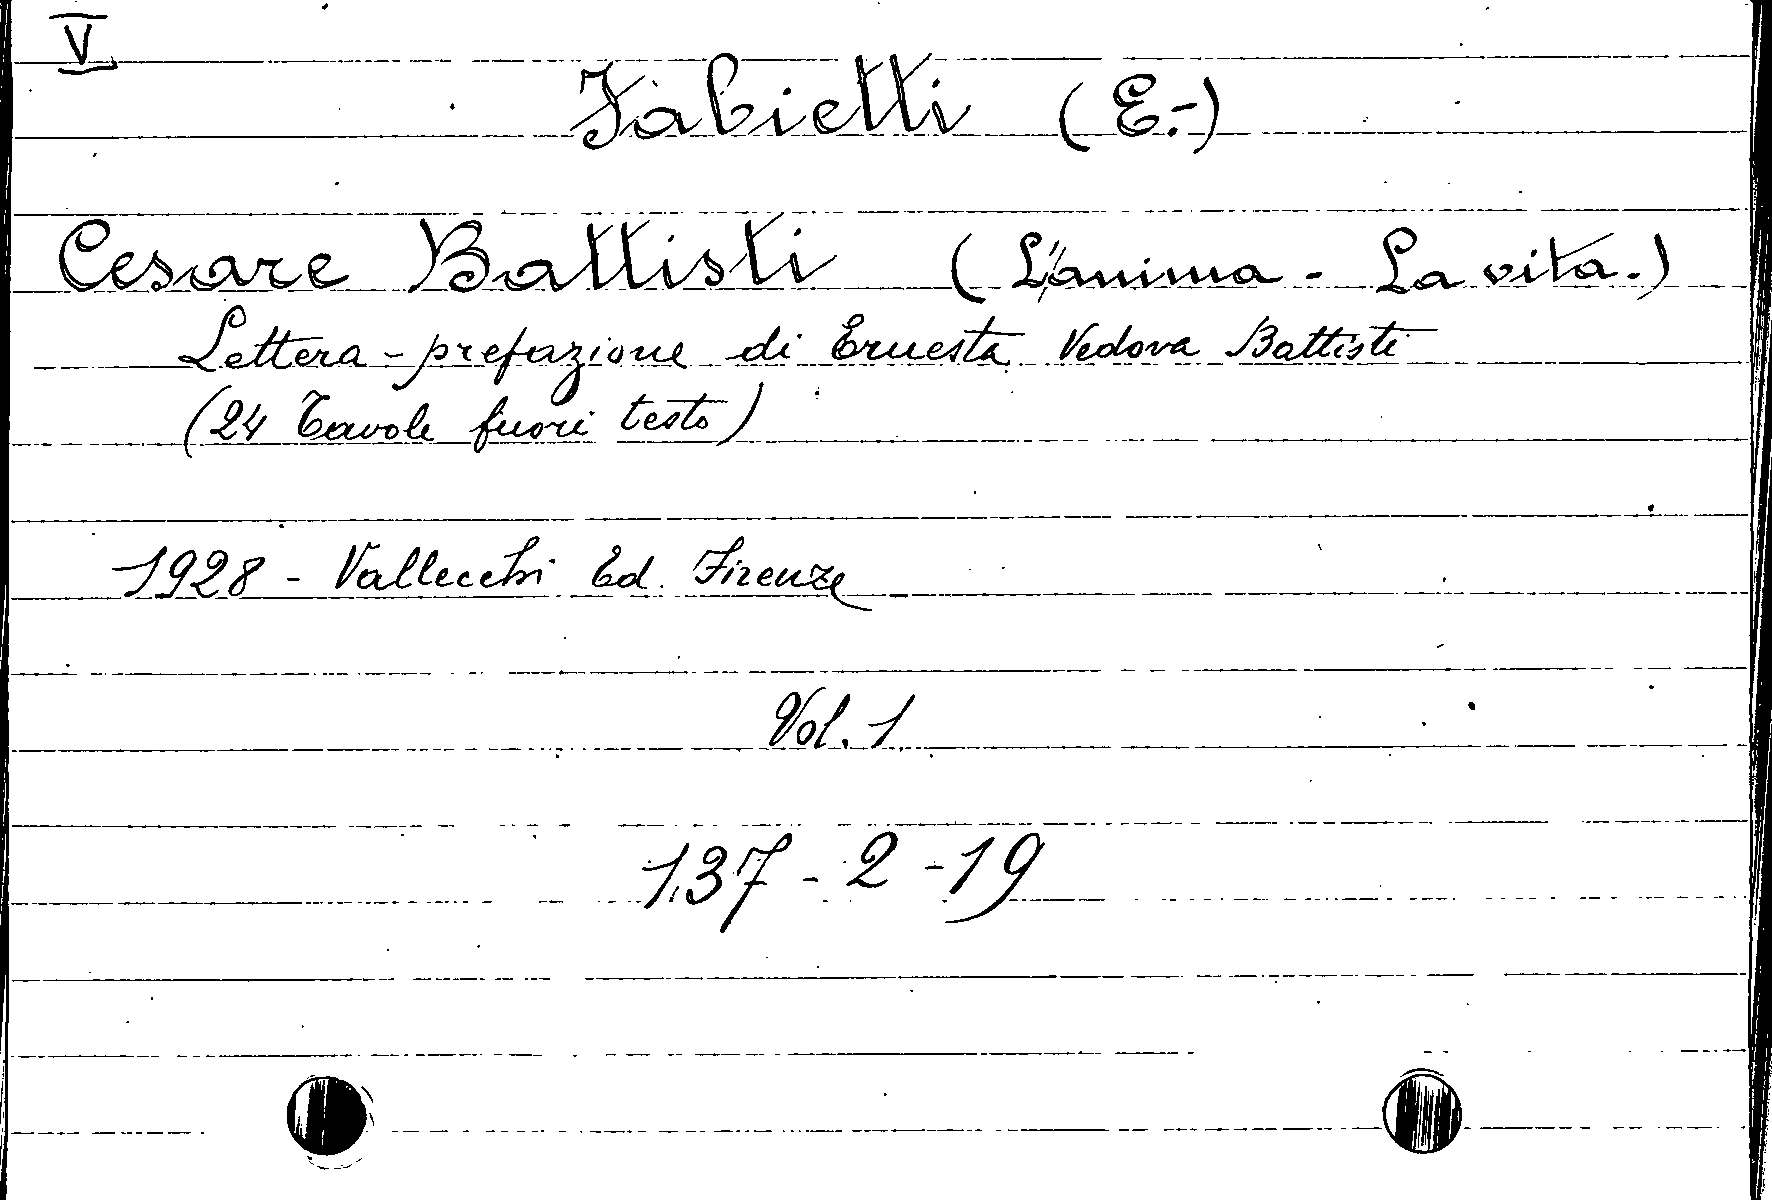 V
Fabietti (E.-)
Cesare Battisti (L'anima - La vita.)
Lettera - prefazione di Ernesta Vedova Battisti
(24 Tavole fuori testo)
1928 - Vallecchi Ed. Firenze
Vol. 1
137 - 2 - 19